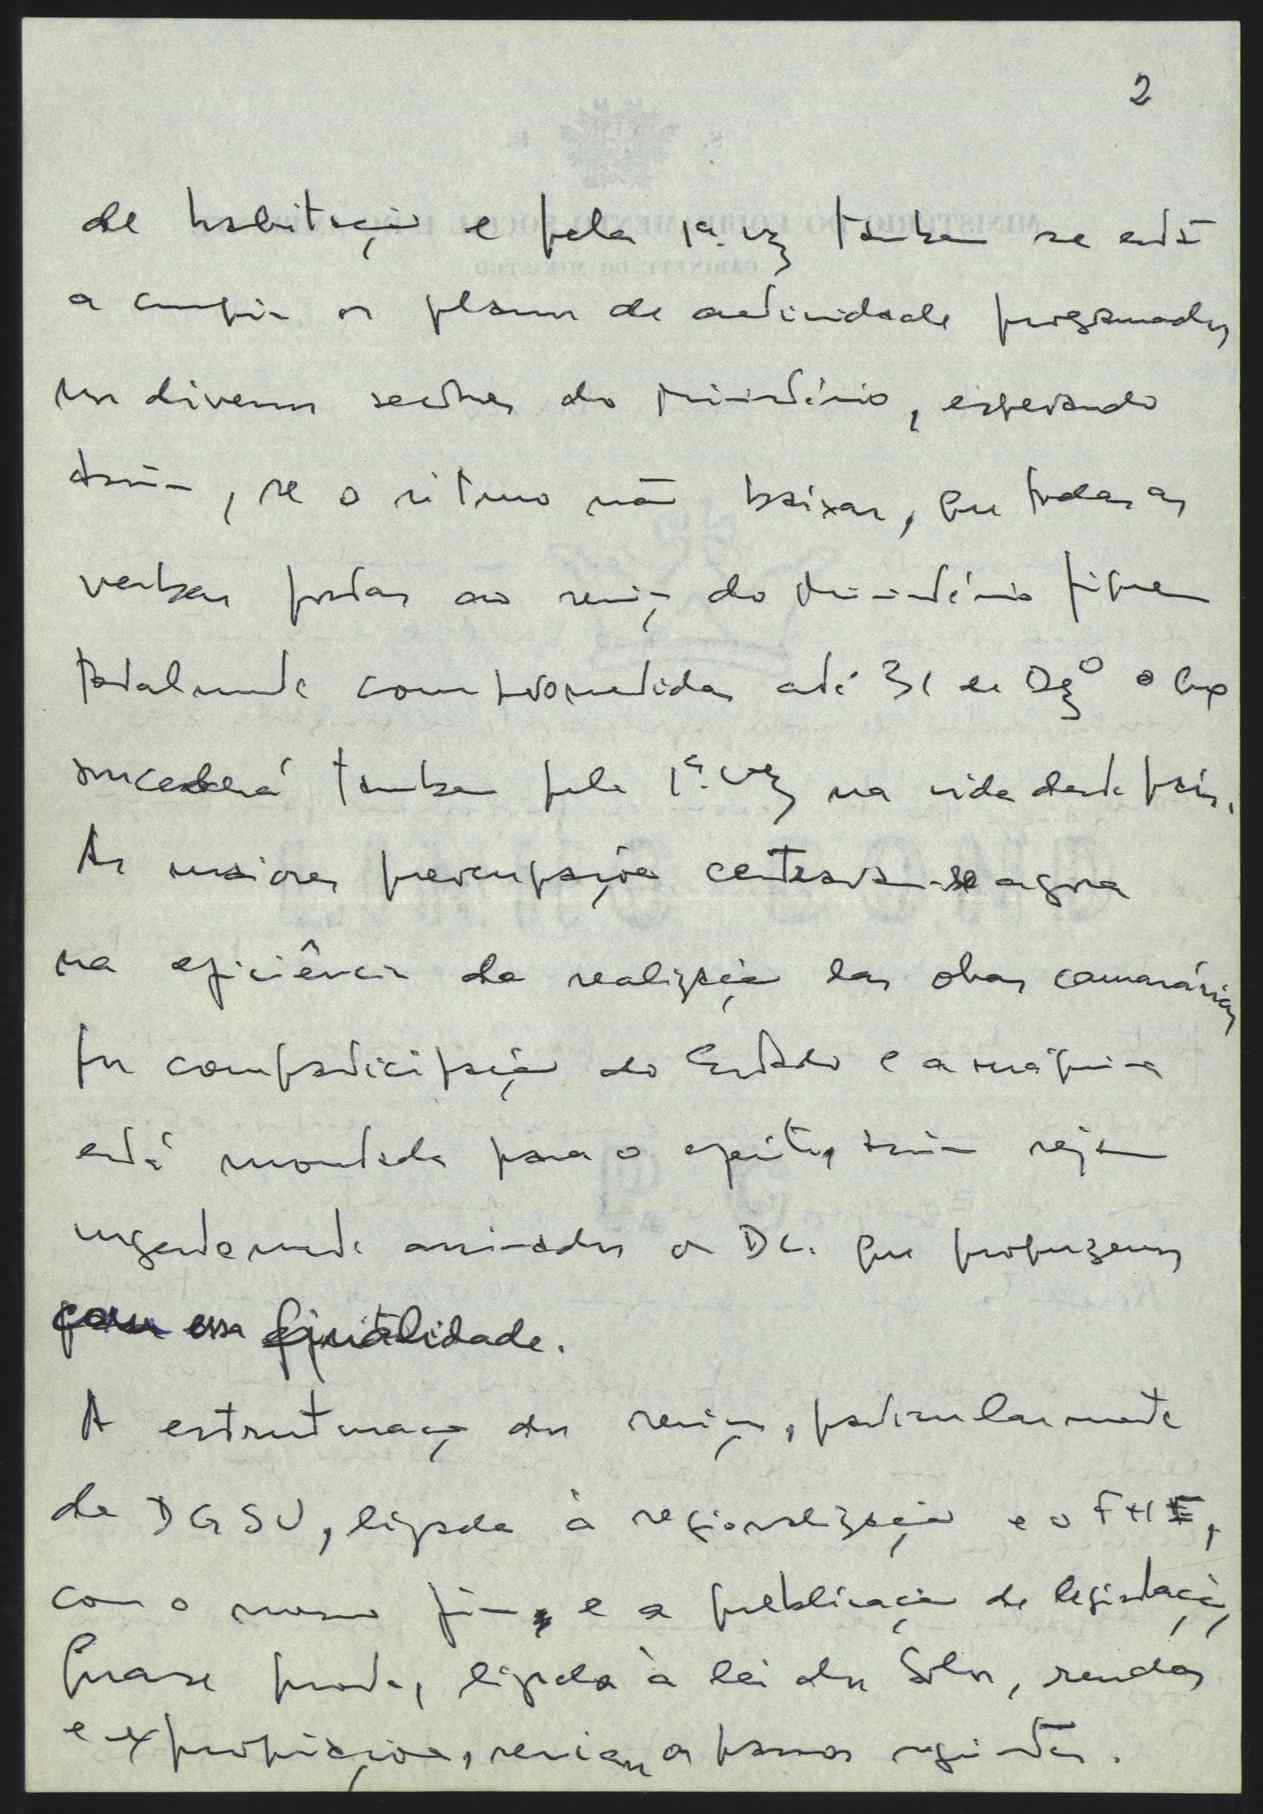 2
de habitação e pela 1ª. vez tambem se está
a cumprir os planos de actividade programados
nos diversos sectores do Ministério, esperando
assim, se o ritmo não baixar, que todas as
verbas postas ao serviço do Ministério fiquem
totalmente comprometidas até 31 de Dezº o que
sucederá tambem pela 1ª. vez na vida deste país.
As maiores preocupações centravam-se agora
na eficiência da realização das obras camarárias
por comparticipação do Estado e a máquina
está montada para o efeito, assim sejam
urgentemente assinados os DL. que propuzemos
com essa finalidade.
A estruturação dos serviços, particularmente
da DGSU, ligada à regionalização e o FFH,
com o mesmo fim, e a publicação de legislação,
quase pronta, ligada à lei dos Solos, rendas
e expropriações, seriam os passos seguintes.